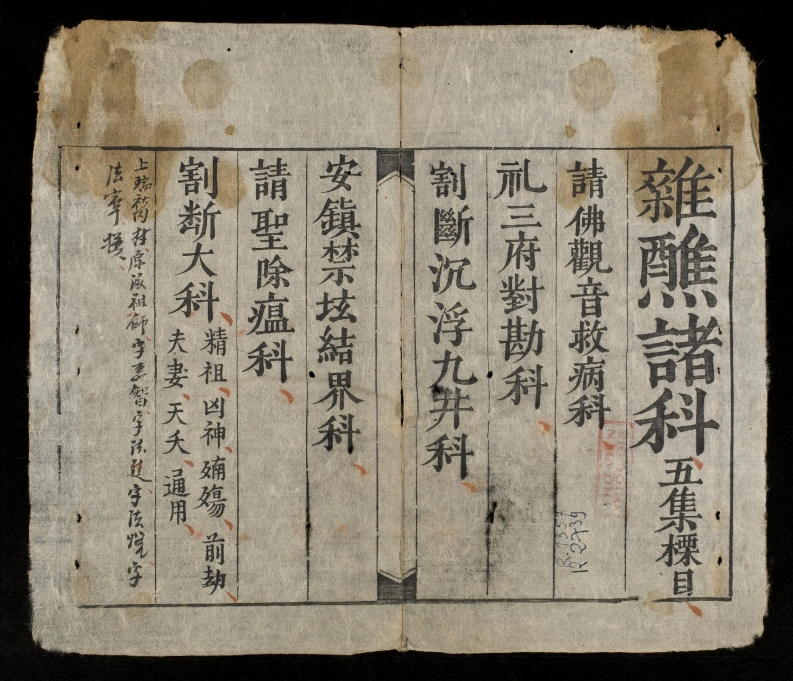 雜醮諸科 五集標目
請佛觀音救病科
礼三府對勘科
割斷沉浮九井科
安鎮禁垓結界科
請聖除瘟科
割断大科 精祖、凶神、殤、前劫、
夫妻、天夭、通用、
上 祖師字 智字法 字法 字
法
R.1357
R.2739